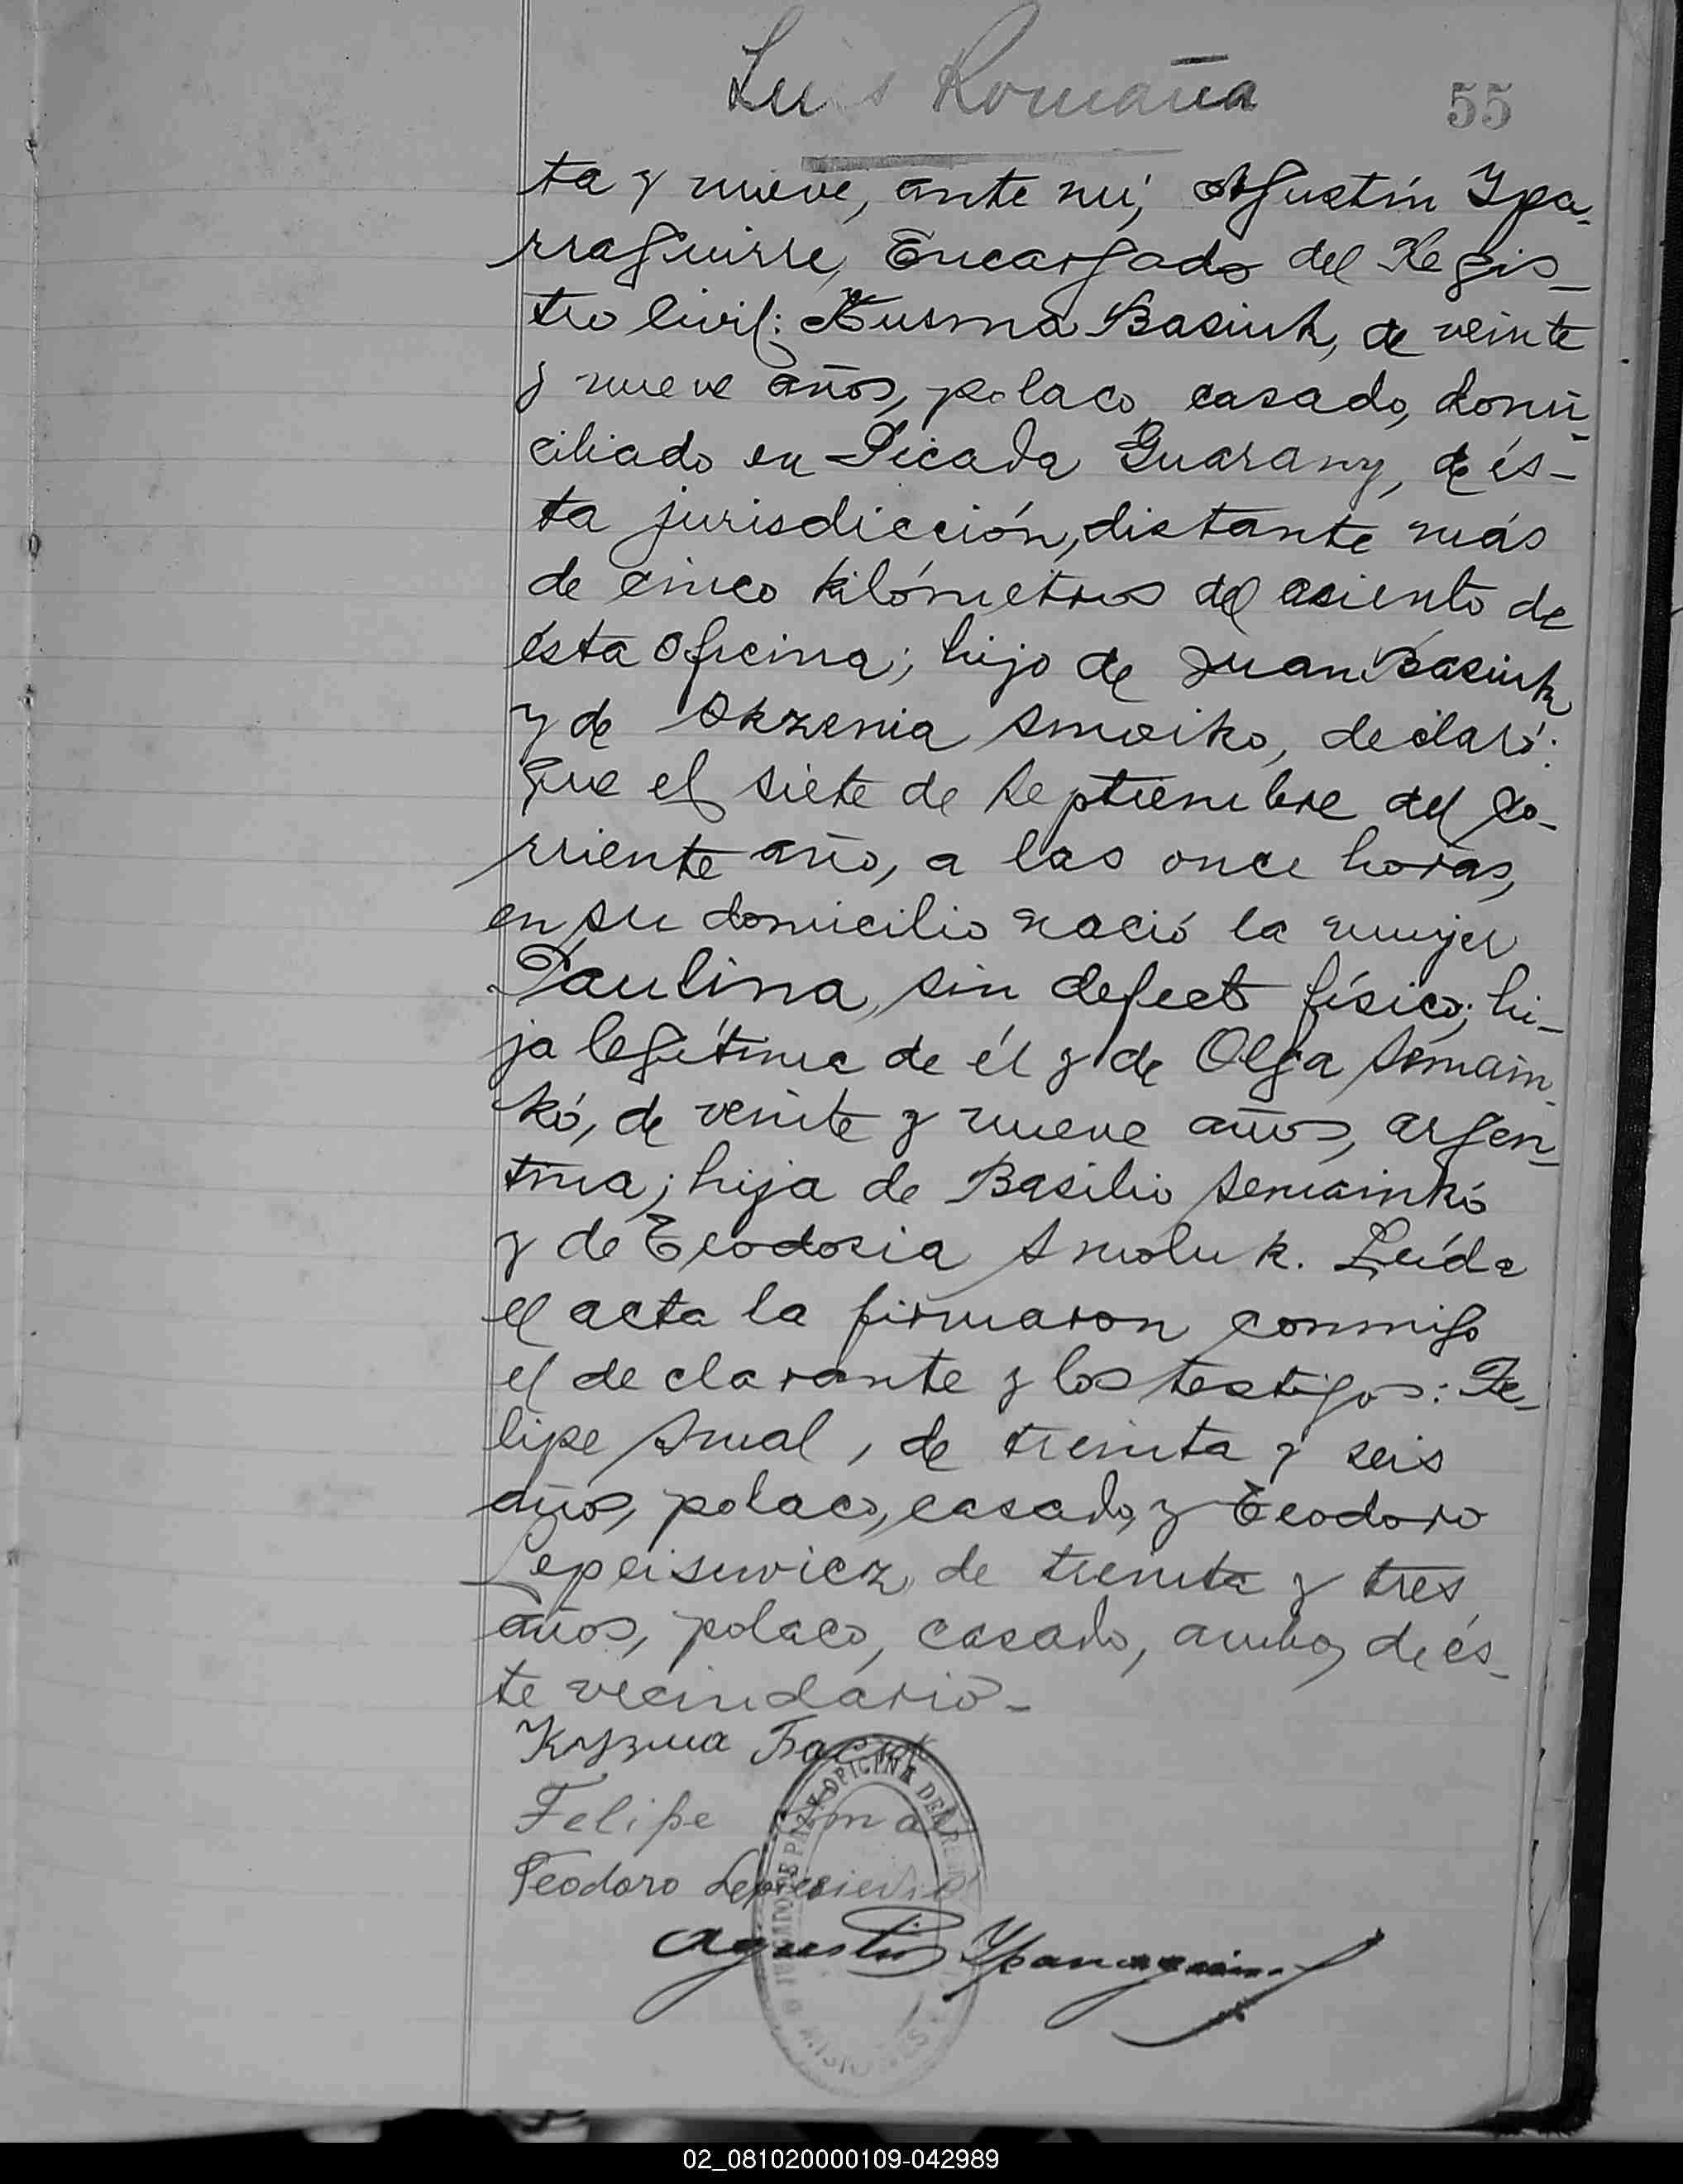 Luis Romaña
55
ta y nueve, ante mí, Agustín Ypa-
rraguirre, Encargado del Regis-
tro Civil: Kusma Basiuk, de veinte
y nueve años, polaco, casado, domi-
ciliado en Picada Guarany, de és-
ta jurisdicción, distante más
de cinco kilómetros del asiento de
ésta Oficina; hijo de Juan Basiuk
y de Okzenia Smoiko, declaró:
Que el siete de Septiembre del co-
rriente año, a las once horas,
en su domicilio nació la mujer
Paulina, sin defecto físico; hi-
ja legítima de él y de Olga Semain-
kó, de veinte y nueve años, argen-
tina; hija de Basilio Semainkó
y de Teodosia Smoluk. Leída
el acta la firmaron conmigo
el declarante y los testigos: Fe-
lipe Smal, de treinta y seis
años, polaco, casado, y Teodoro
Lepeisuvicz, de treinta y tres
años, polaco, casado, ambos de és-
te vecindario-
Felipe Smal
Teodoro
Agustín Yparraguirre
OFICINA DEL
MISIONES
02_081020000109-042989